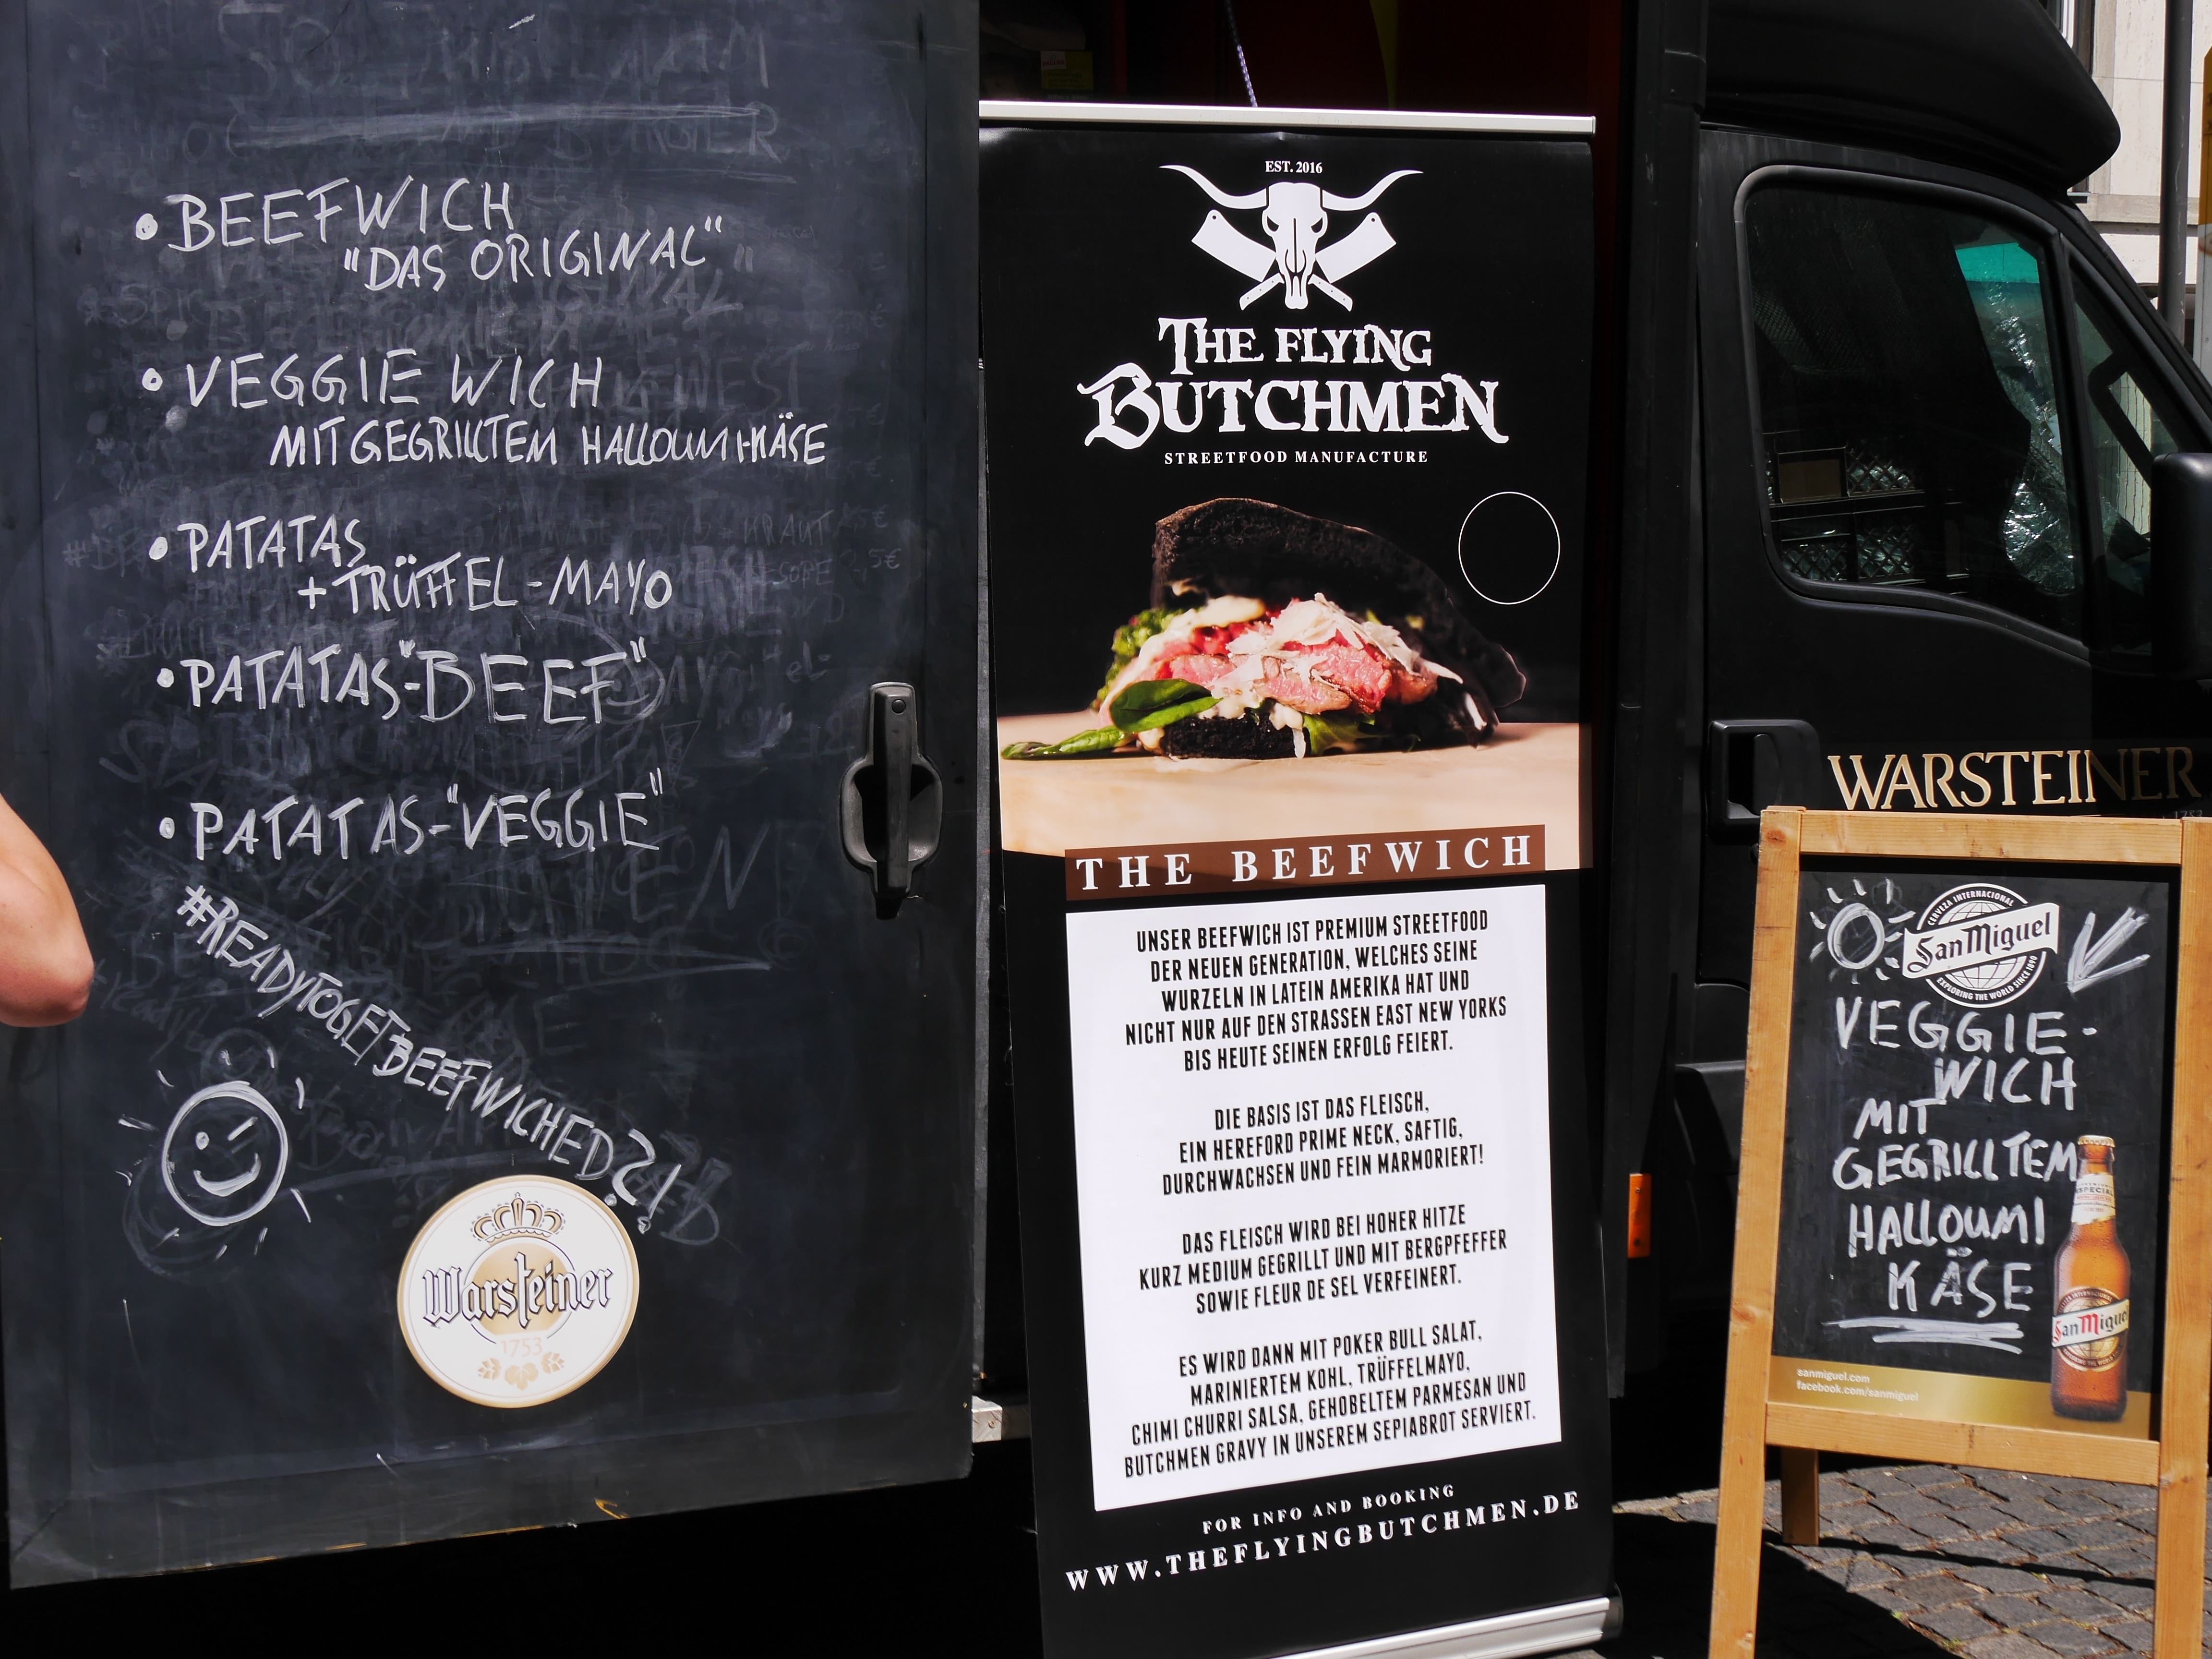 • BEEFWICH
"DAS ORIGINAL"
• VEGGIE WICH
MIT GEGRILLTEM HALLOUMI-KÄSE
• PATATAS
+ TRÜFFEL-MAYO
• PATATAS-"BEEF"
• PATATAS-"VEGGIE"
#READYTOGETBEEFWICHED?!
Warsteiner
1753
EST. 2016
THE FLYING
BUTCHMEN
STREETFOOD MANUFACTURE
THE BEEFWICH
UNSER BEEFWICH IST PREMIUM STREETFOOD
DER NEUEN GENERATION, WELCHES SEINE
WURZELN IN LATEIN AMERIKA HAT UND
NICHT NUR AUF DEN STRASSEN EAST NEW YORKS
BIS HEUTE SEINEN ERFOLG FEIERT.
DIE BASIS IST DAS FLEISCH,
EIN HEREFORD PRIME NECK, SAFTIG,
DURCHWACHSEN UND FEIN MARMORIERT!
DAS FLEISCH WIRD BEI HOHER HITZE
KURZ MEDIUM GEGRILLT UND MIT BERGPFEFFER
SOWIE FLEUR DE SEL VERFEINERT.
ES WIRD DANN MIT POKER BULL SALAT,
MARINIERTEM KOHL, TRÜFFELMAYO,
CHIMI CHURRI SALSA, GEHOBELTEM PARMESAN UND
BUTCHMEN GRAVY IN UNSEREM SEPIABROT SERVIERT.
FOR INFO AND BOOKING
WWW.THEFLYINGBUTCHMEN.DE
WARSTEINER
1753
CERVEZA INTERNACIONAL
San Miguel
EXPLORING THE WORLD SINCE 1890
VEGGIE-
WICH
MIT
GEGRILLTEM
HALLOUMI
KÄSE
ESPECIAL
San Miguel
sanmiguel.com
facebook.com/sanmiguel